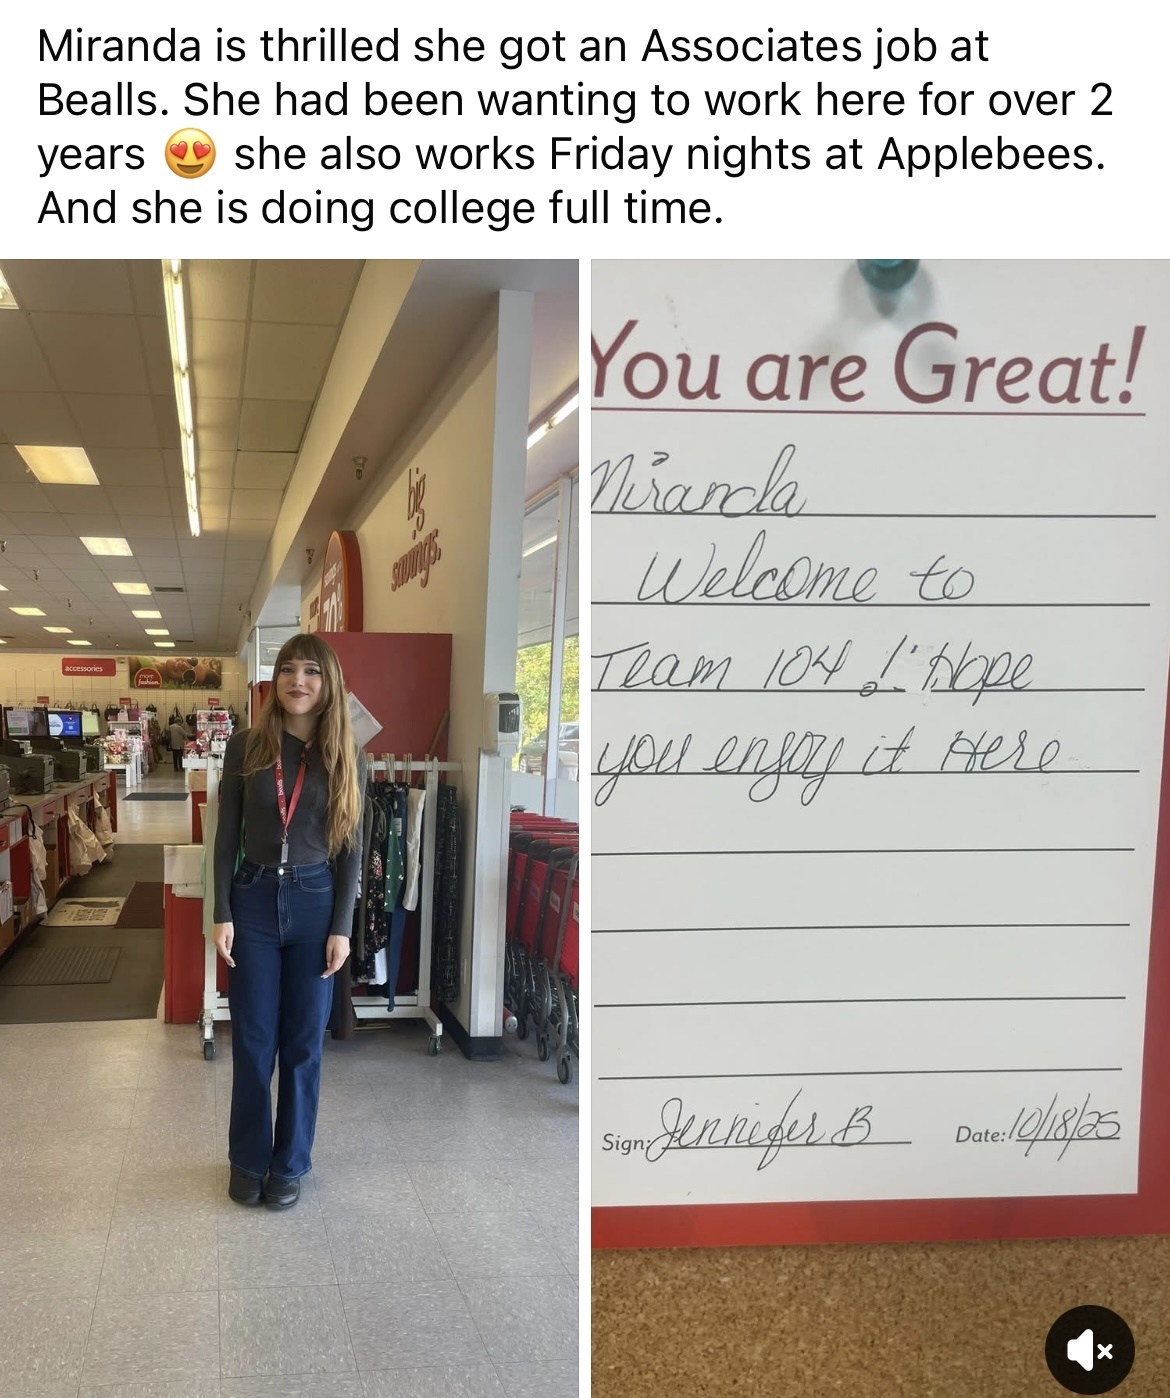 Miranda is thrilled she got an Associates job at
Bealls. She had been wanting to work here for over 2
years 😍 she also works Friday nights at Applebees.
And she is doing college full time.
big
savings.
70%
accessories
more
fashion.
You are Great!
Miranda
Welcome to
Team 104 !! Hope
you enjoy it Here
Sign: Jennifer B
Date: 10/18/25